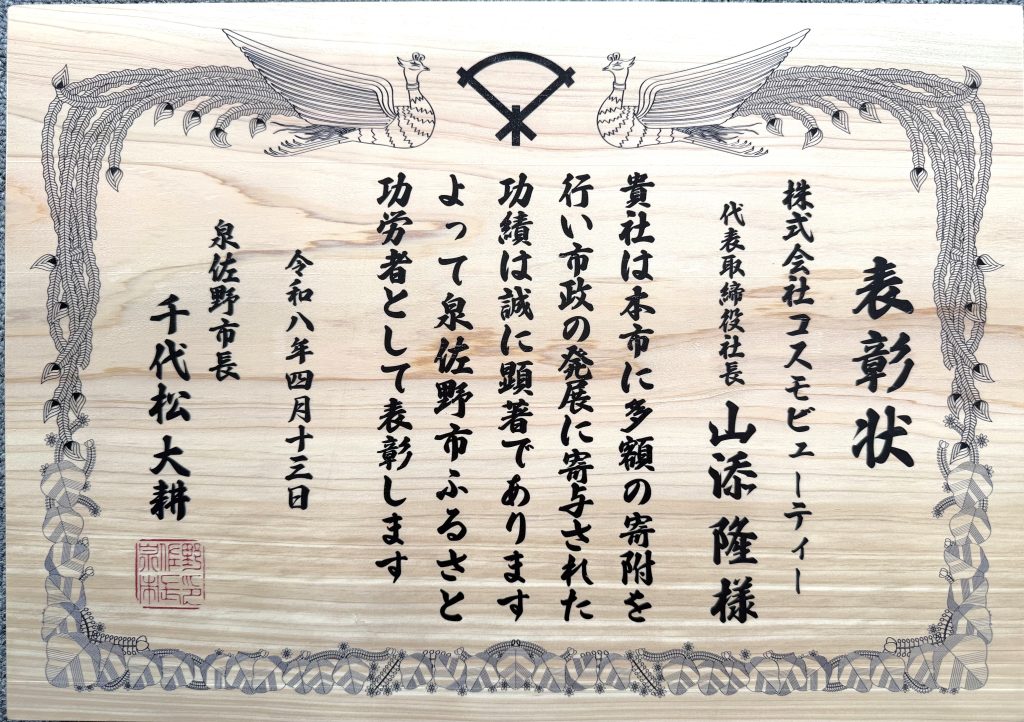 表彰状
株式会社コスモビューティー
代表取締役社長 山添隆様
貴社は本市に多額の寄附を
行い市政の発展に寄与された
功績は誠に顕著であります
よって泉佐野市ふるさと
功労者として表彰します
令和八年四月十三日
泉佐野市長
千代松大耕